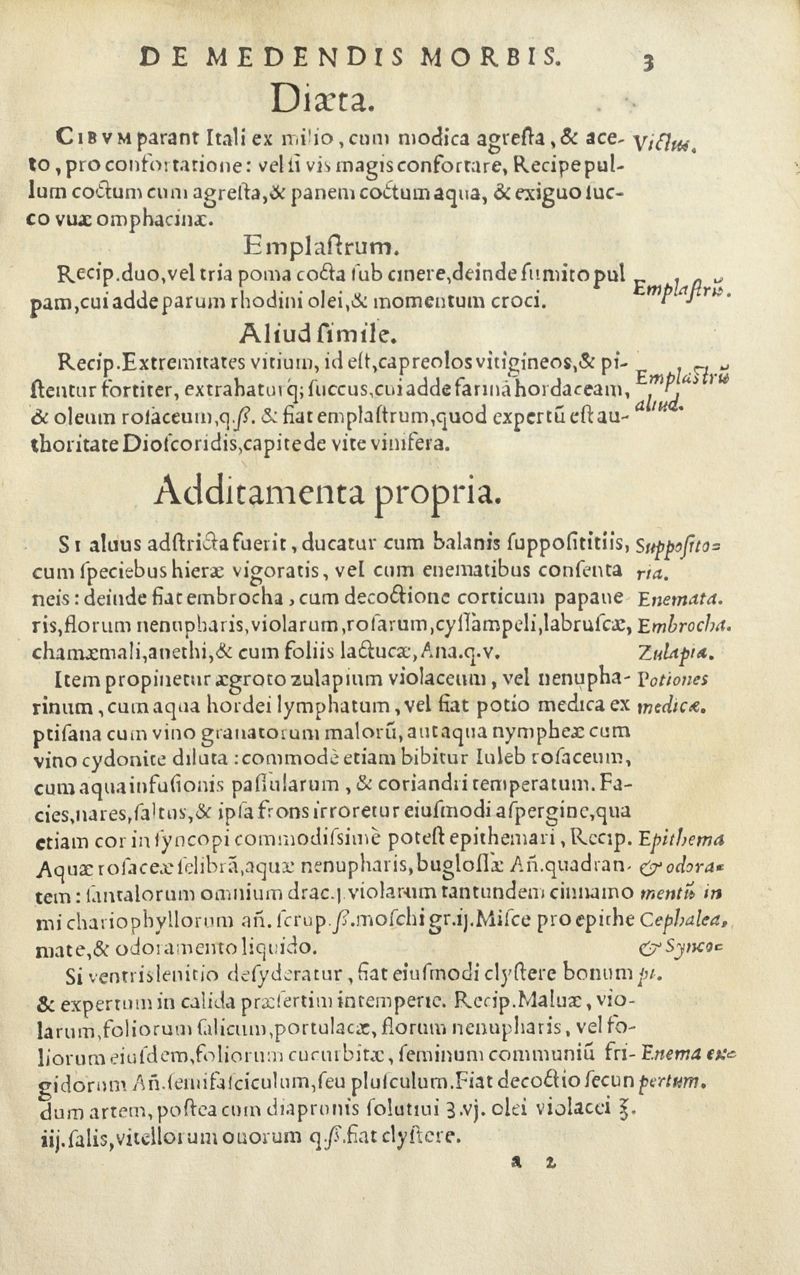 DE MEDENDIS MORBIS. 3
Diæta.
CIBVM parant Itali ex milio, cum modica agreſta, & ace- Victus.
to, pro confortatione: vel ſi vis magis confortare, Recipe pul-
lum coctum cum agreſta, & panem coctum aqua, & exiguo ſuc-
co vuæ omphacinæ.
Emplaſtrum.
Recip.duo, vel tria poma cocta ſub cinere, deinde fumito pul Emplaſtrū.
pam, cui adde parum rhodini olei, & momentum croci.
Aliud ſimile.
Recip.Extremitates vitium, id eſt, capreolos vitigineos, & pi- Emplaſtrū
ſtentur fortiter, extrahatur q; ſuccus, cui adde farinā hordaceam, aliud.
& oleum roſaceum, q.ß. & fiat emplaſtrum, quod expertū eſt au-
thoritate Dioſcoridis, capite de vite vinifera.
Additamenta propria.
SI aluus adſtricta fuerit, ducatur cum balanis ſuppoſititiis, Suppoſito=
cum ſpeciebus hieræ vigoratis, vel cum enematibus conſenta ria.
neis: deinde fiat embrocha, cum decoctione corticum papaue Enemata.
ris, florum nenupharis, violarum, roſarum, cyſſampeli, labruſcæ, Embrocha.
chamæmali, anethi, & cum foliis lactucæ, Ana.q.v. Zulapia.
Item propinetur ægroto zulapium violaceum, vel nenupha- Potiones
rinum, cum aqua hordei lymphatum, vel fiat potio medica ex medicæ.
ptiſana cum vino granatorum malorū, aut aqua nympheæ cum
vino cydonite diluta: commodè etiam bibitur Iuleb roſaceum,
cum aqua infuſionis paſſularum, & coriandri temperatum. Fa-
cies, nares, ſaltus, & ipſa frons irroretur eiuſmodi aſpergine, qua
etiam cor in ſyncopi commodiſsimè poteſt epithemari, Recip. Epithema
Aquæ roſaceæ ſelibrā, aquæ nenupharis, bugloſſæ Añ.quadran- & odora=
tem: ſantalorum omnium drac.j violarum tantundem cinnamo mentū in
mi chariophyllorum añ. ſcrup.ß.moſchi gr.ij.Miſce pro epithe Cephalea,
mate, & odoramento liquido. & Synco=
Si ventris lenitio deſyderatur, fiat eiuſmodi clyſtere bonum pi.
& expertum in calida præſertim intemperie. Recip.Maluæ, vio-
larum, foliorum ſalicum, portulacæ, florum nenupharis, vel fo-
liorum eiuſdem, foliorum cucurbitæ, ſeminum communiū fri- Enema ex=
gidorum Añ.ſemifaſciculum, ſeu pluſculum.Fiat decoctio ſecun pertum.
dum artem, poſtea cum diaprunis ſolutiui ʒ.vj. olei violacei ℥.
iij. ſalis, vitellorum ouorum q.ß.fiat clyſtere.
a 2